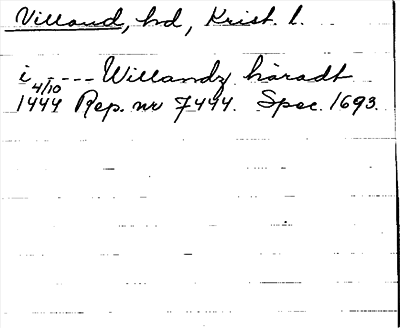 Villand, hd, Krist. l.
i - - - - Willandz häradt
4/10
1444 Rep. nr 7444. Spec. 1693.